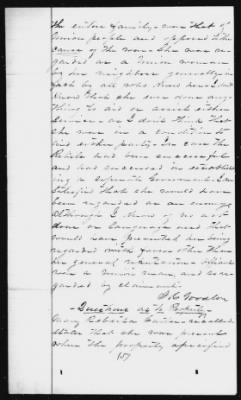 the entire family were that of
Union people and opposed to the
cause of the war. She was re-
garded as a Union woman
by her neighbors generally in
fact by all who knew her. I don't
know that she ever done any
thing to aid or assist either
service as I don't think that
she was in a condition to
aid either party. In case the
Rebels had been successful
and had succeeded in establish-
ing a separate Government I am
satisfied that she would have
been regarded as an enemy
although I know of no act
done or language used that
would have prevented her being
regarded with favor other than
her general reputation which
was a Union man, and so re-
garded by claimant.
Questions as to Property
Mary recalled
states that she was present
when the property specified
(5)